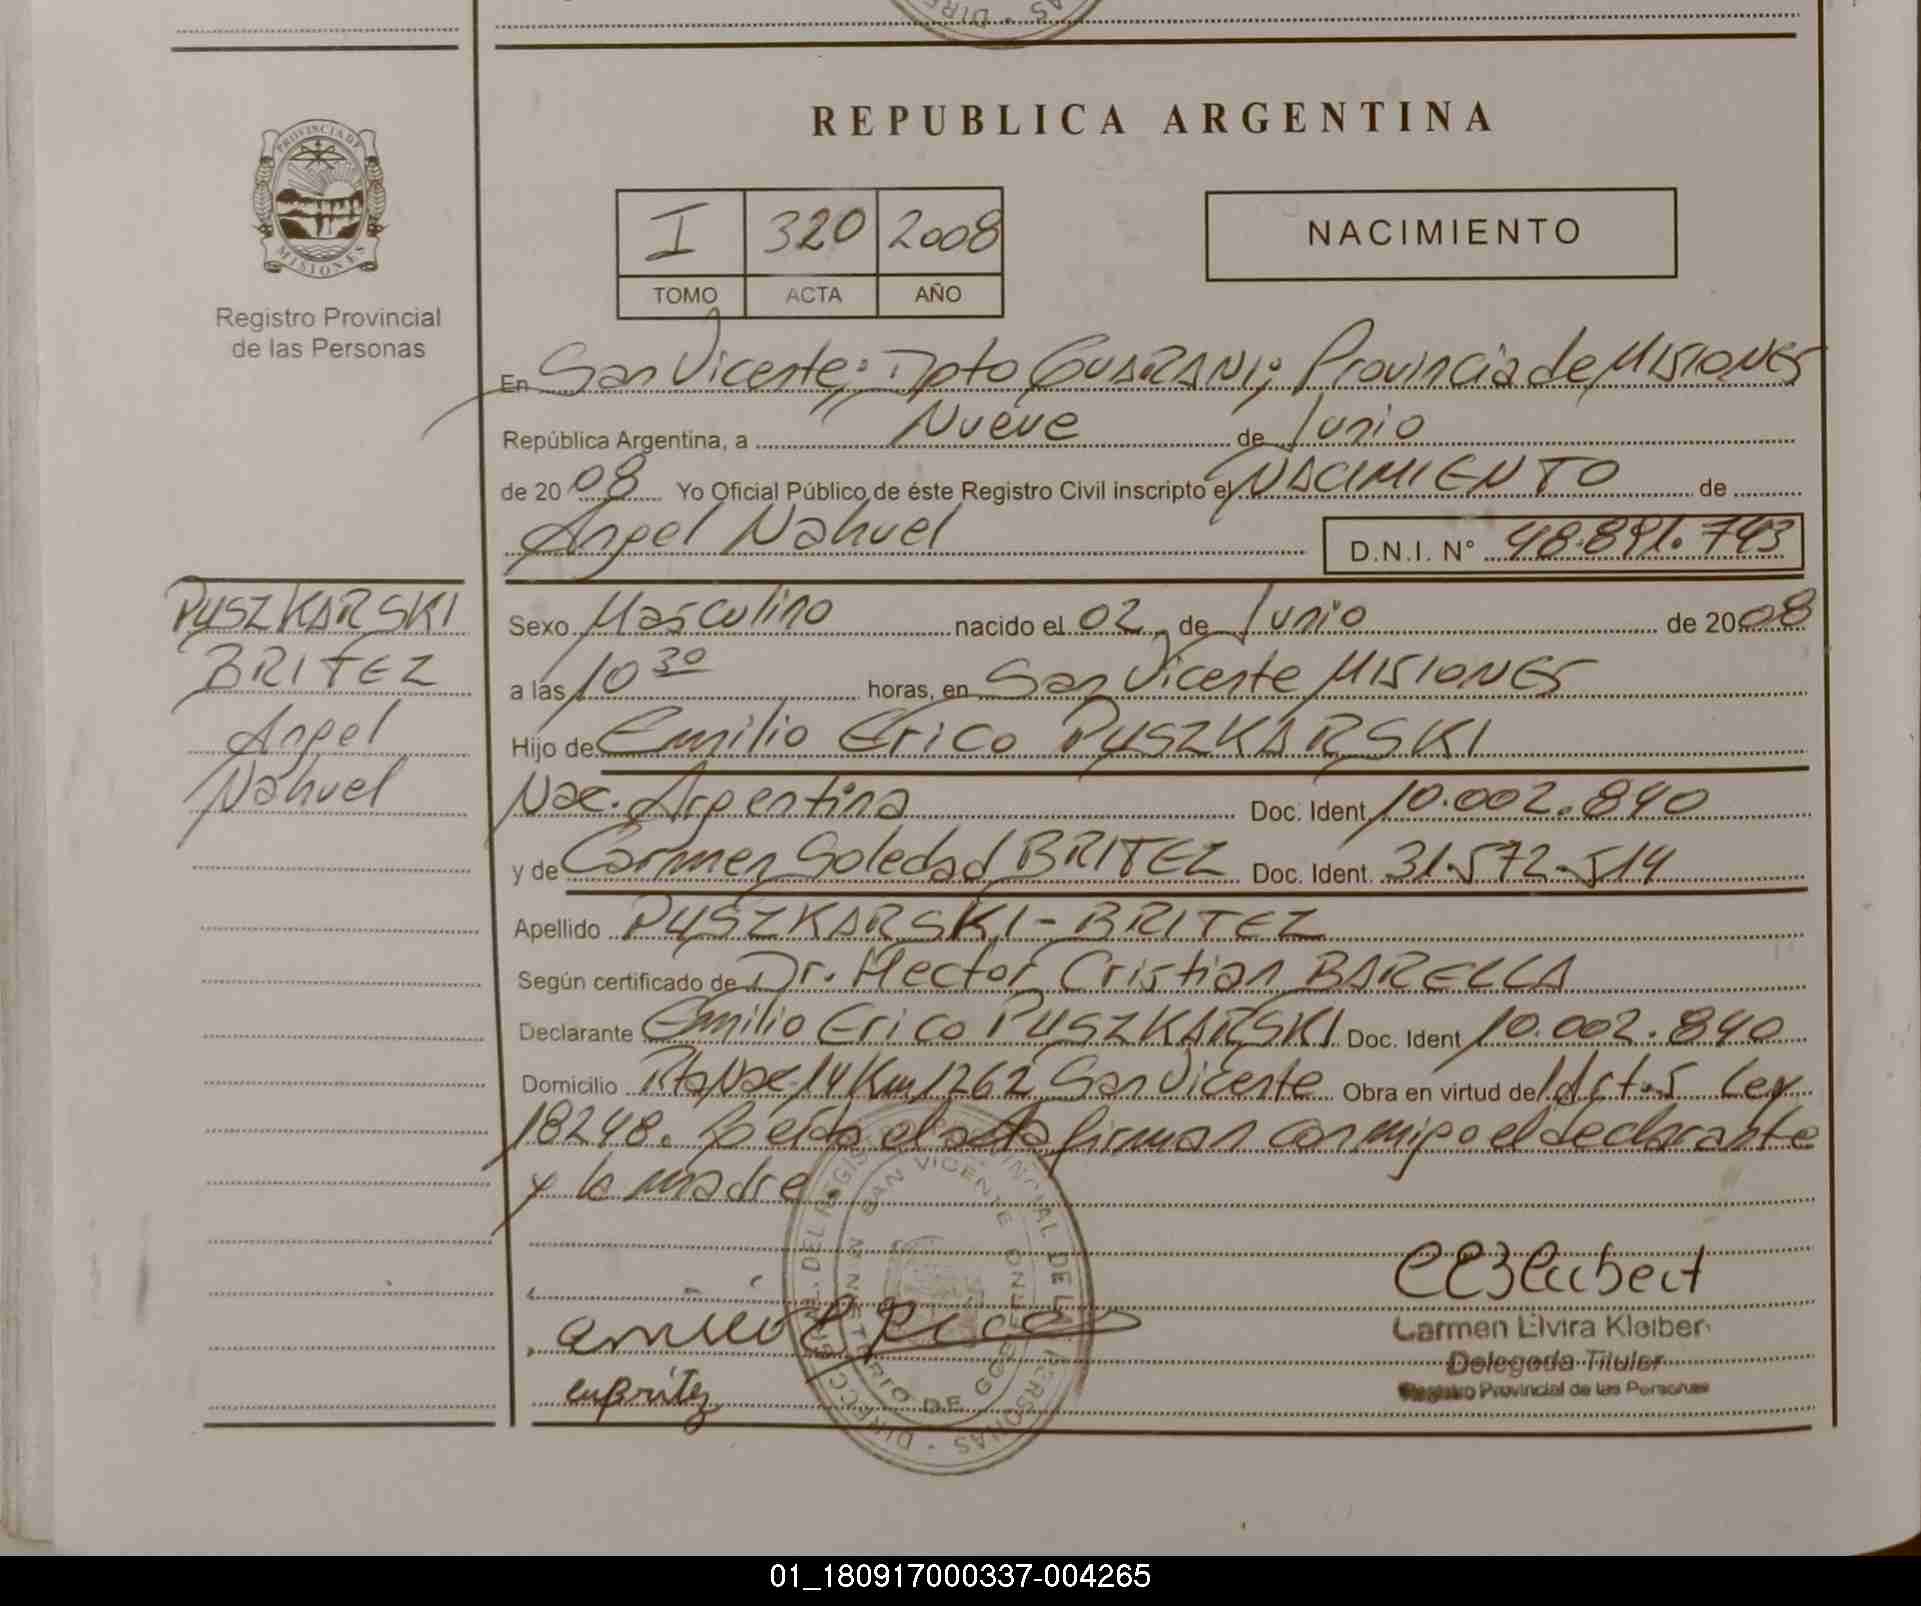 REPUBLICA ARGENTINA
PROVINCIA DE
MISIONES
Registro Provincial
de las Personas
I 320 2008
TOMO ACTA AÑO
NACIMIENTO
En San Vicente; Dpto GUARANI; Provincia de MISIONES
República Argentina, a Nueve de Junio
de 2008 Yo Oficial Público de éste Registro Civil inscripto el NACIMIENTO de
Angel Nahuel D.N.I. N° 48.891.743
PUSZKARSKI
BRITEZ
Angel
Nahuel
Sexo Masculino nacido el 02 de Junio de 2008
a las 10 30 horas, en San Vicente MISIONES
Hijo de Emilio Erico PUSZKARSKI
Nac. Argentina Doc. Ident 10.002.840
y de Carmen Soledad BRITEZ Doc. Ident. 31.572.514
Apellido PUSZKARSKI-BRITEZ
Según certificado de Dr. Hector Cristian BARELLA
Declarante Emilio Erico PUSZKARSKI Doc. Ident 10.002.840
Domicilio Rta Nac 14 Km 1262 San Vicente Obra en virtud de Art. 5 Ley
18248. Leída el acta firman conmigo el declarante
y la madre
SAN VICENTE
MINISTERIO DE GOBIERNO
Carmen Elvira Kleiber
Delegada Titular
Registro Provincial de las Personas
01_180917000337-004265